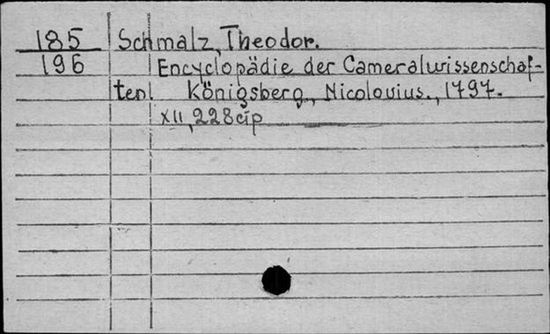 185 Schmalz, Theodor.
196 Encyclopädie der Cameralwissenschaf-
ten. Königsberg, Nicolovius., 1797.
XII, 228